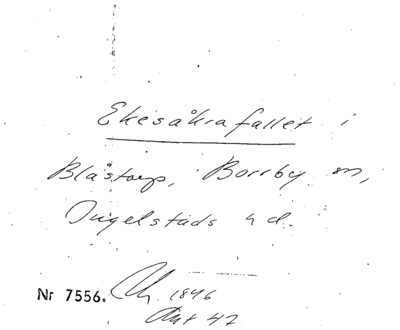 Ekesåkrafallet i
Blåstorp, Borrby sn,
Ingelstads hd.
Nr 7556. 1846
Akt 47